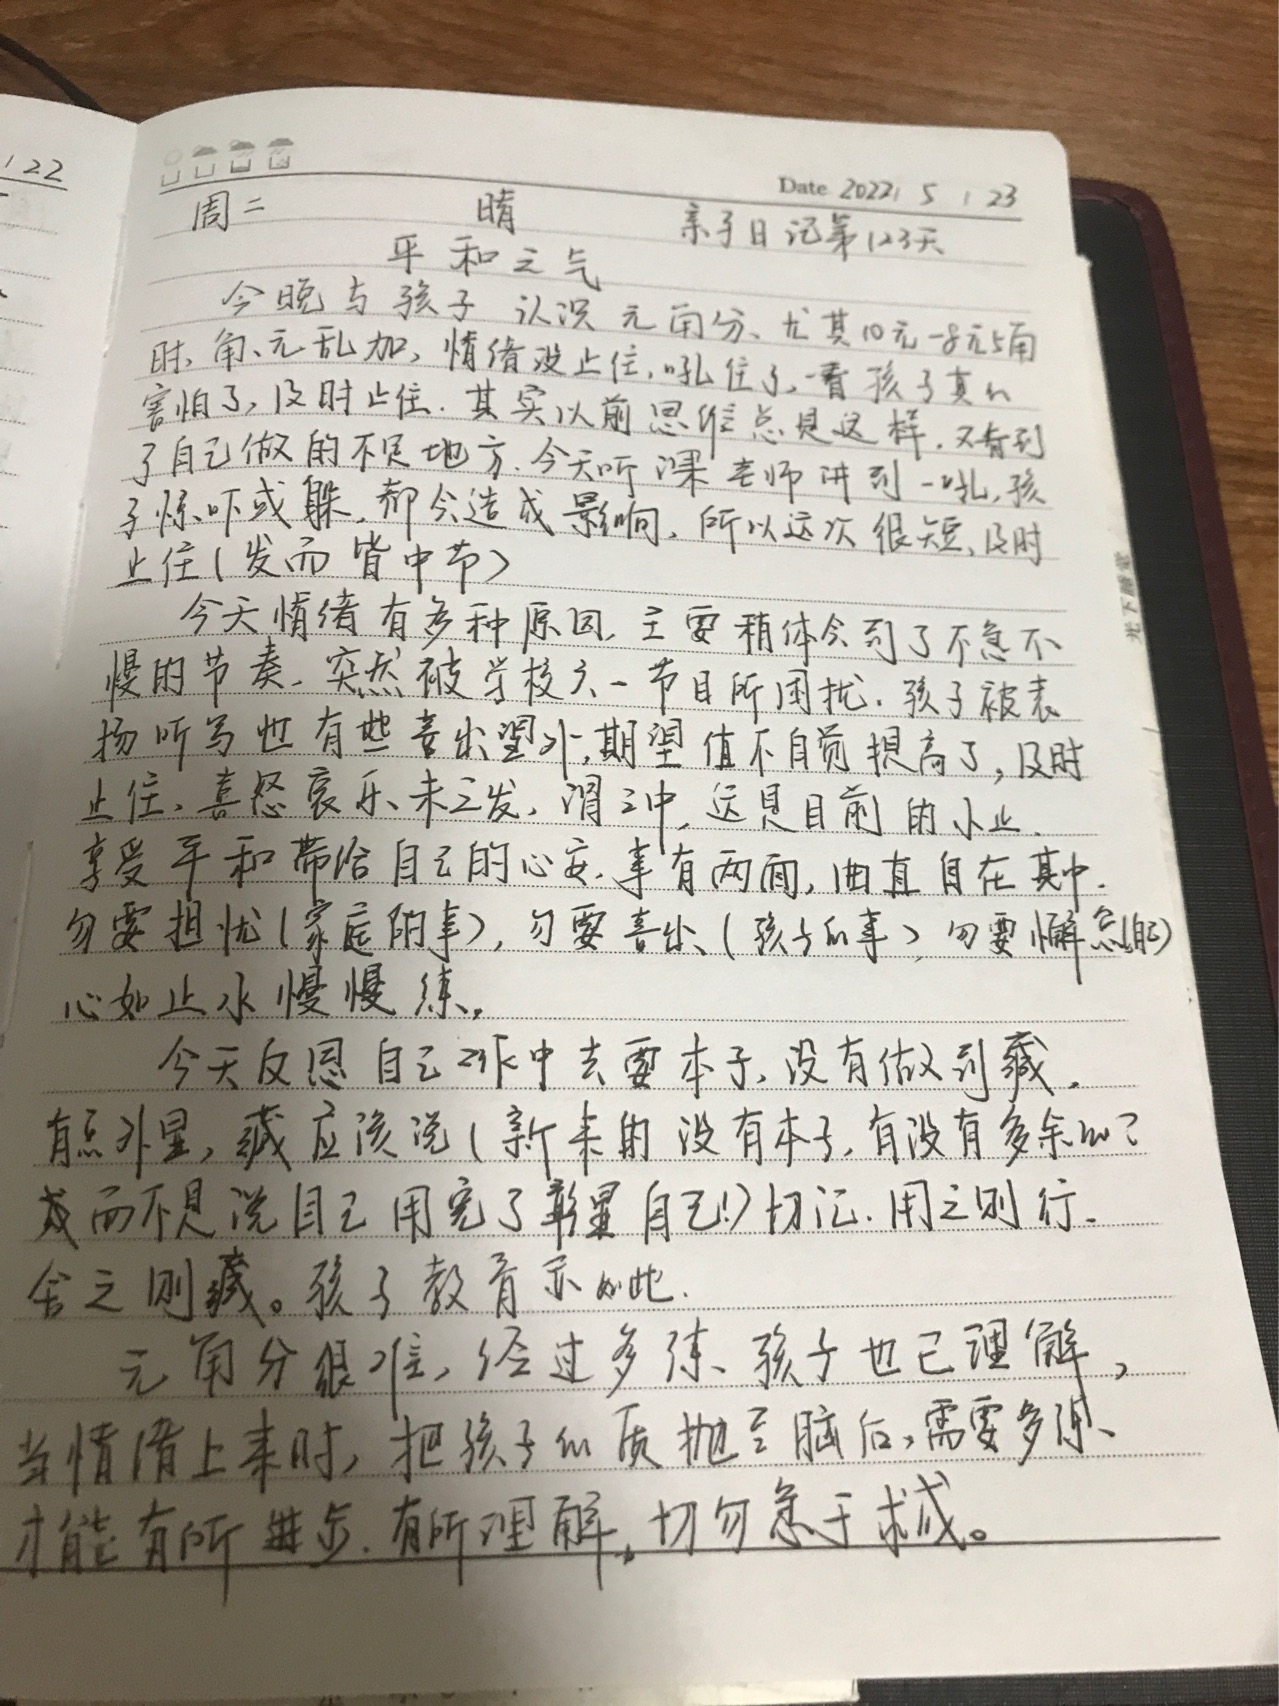 122
Date 2022 5 23
周二 晴 亲子日记第123天
平和之气
今晚与孩子认识元角分、尤其10元-8元5角
时、角、元乱加,情绪没止住,吼住了,一看孩子真的
害怕了,及时止住.其实以前思维总是这样.又看到
了自己做的不足地方.今天听课老师讲到一吼,孩
子惊吓或躲,都会造成影响,所以这次很短、及时
止住(发而皆中节)
今天情绪有多种原因.主要稍体会到了不急不
慢的节奏、突然被学校六一节目所困扰.孩子被表
扬听写也有些喜出望外,期望值不自觉提高了,及时
止住、喜怒哀乐、未之发,谓之中,这是目前的小止.
享受平和带给自己的心安.事有两面,曲直自在其中.
勿要担忧(家庭的事),勿要喜出、(孩子的事)勿要懈怠(自己)
心如止水慢慢练。
今天反思自己工作中去要本子,没有做到藏.
有点外显,藏应该说(新来的没有本子,有没有多余的?
而不是说自己用完了彰显自己!)切记.用之则行.
舍之则藏。孩子教育亦如此.
元角分很难,经过多练、孩子也已理解,
当情绪上来时,把孩子的质抛至脑后,需要多练、
才能有所进步.有所理解,切勿急于求成。